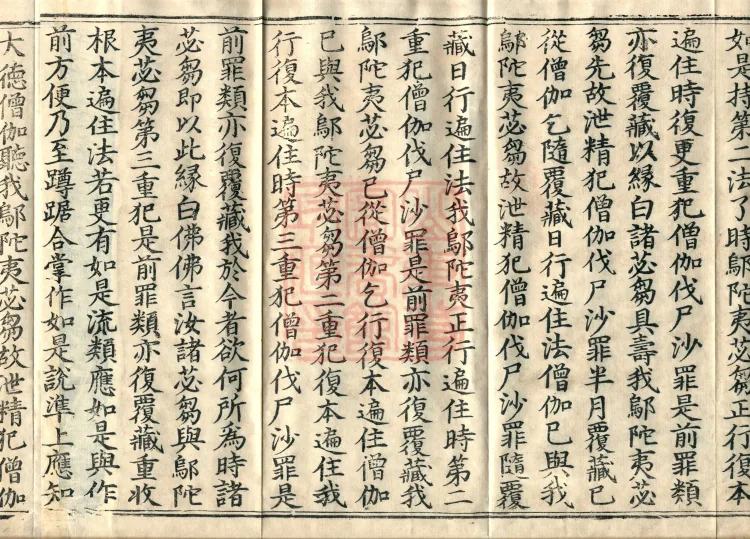 如是持第二法了時鄔陀夷苾芻正行復本
遍住時復更重犯僧伽伐尸沙罪是前罪類
亦復覆藏以緣白諸苾芻具壽我鄔陀夷苾
芻先故泄精犯僧伽伐尸沙罪半月覆藏已
從僧伽乞隨覆藏日行遍住法僧伽已與我
鄔陀夷苾芻故泄精犯僧伽伐尸沙罪隨覆
藏日行遍住法我鄔陀夷正行遍住時第二
重犯僧伽伐尸沙罪是前罪類亦復覆藏我
鄔陀夷苾芻已從僧伽乞行復本遍住僧伽
已與我鄔陀夷苾芻第二重犯復本遍住我
行復本遍住時第三重犯僧伽伐尸沙罪是
前罪類亦復覆藏我於今者欲何所為時諸
苾芻即以此緣白佛佛言汝諸苾芻與鄔陀
夷苾芻第三重犯是前罪類亦復覆藏重收
根本遍住法若更有如是流類應如是與作
前方便乃至蹲踞合掌作如是說準上應知
大德僧伽聽我鄔陀夷苾芻故泄精犯僧伽